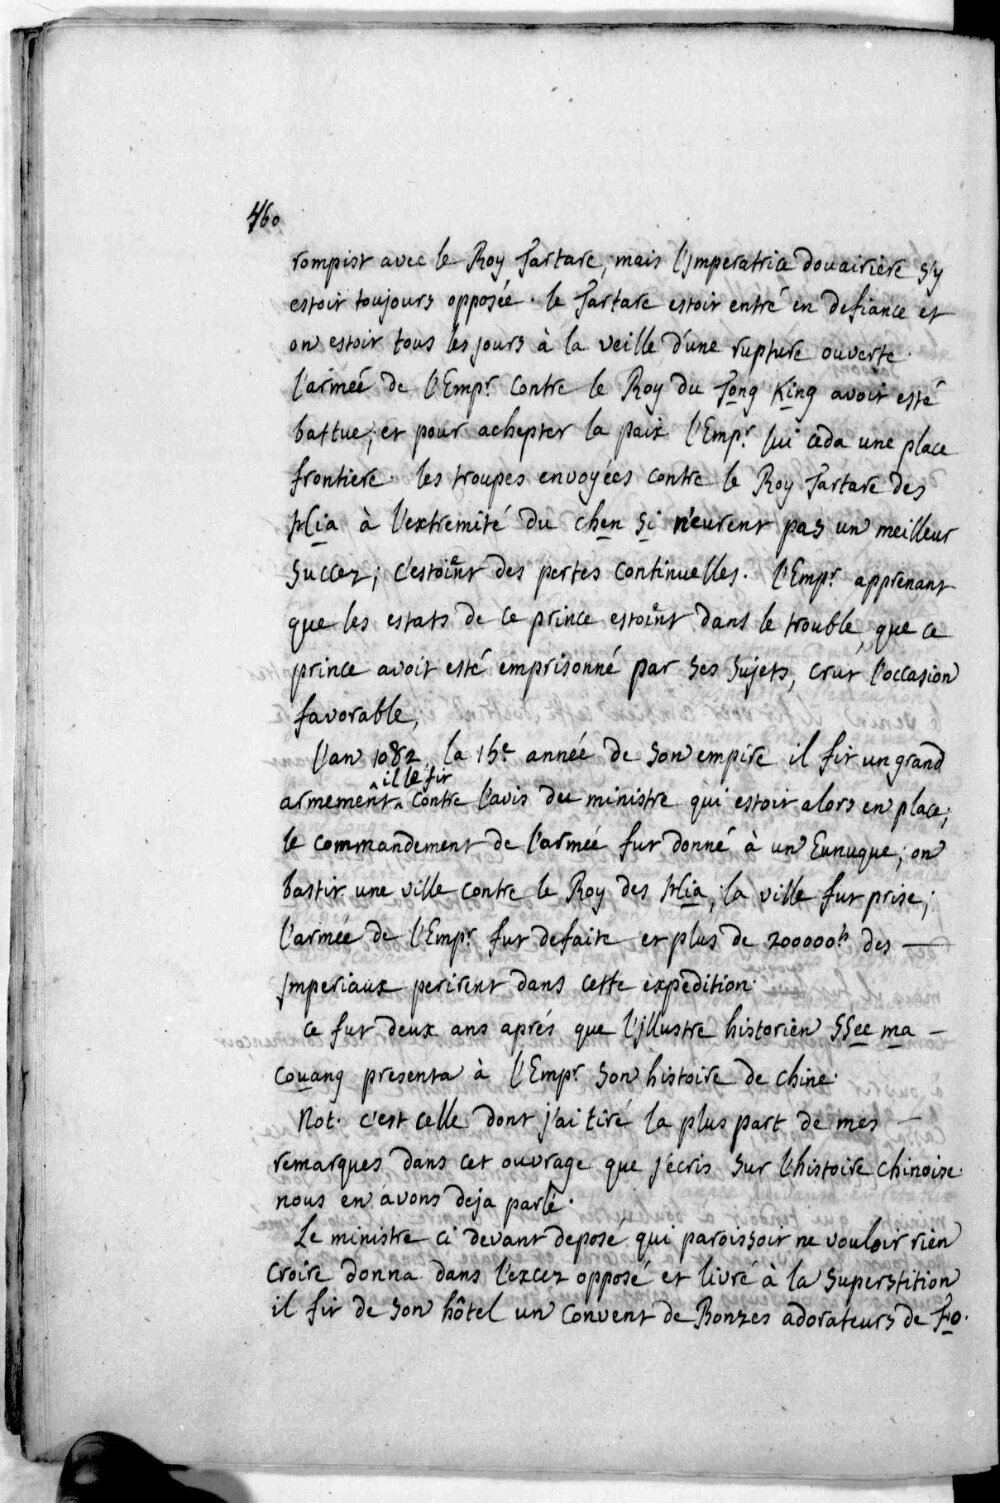 460
rompist avec le Roy Tartare, mais l'jmperatrice douairière s'y
estoit toujours opposée. le Tartare estoit entré en defiance et
on estoit tous les jours à la veille d'une rupture ouverte.
l'armeé de l'Emp.r contre le Roy du Tong King avoit esté
battue; et pour achepter la paix l'Emp.r lui ceda une place
frontiere. les troupes envoyées contre le Roy Tartare des
Hia à l'extremité du chen si n'eurent pas un meilleur
succez; c'estoient des pertes continuelles. l'Emp.r apprenant
que les estats de ce prince estoient dans le trouble, que ce
prince avoit esté emprisonné par ses sujets, crut l'occasion
favorable,
l'an 1082, la 15.e année de son empire il fit un grand
armement, il le fit contre l'avis du ministre qui estoit alors en place;
le commandement de l'armée fut donné à un Eunuque; on
bastit une ville contre le Roy des Hia, la ville fut prise;
l'armée de l'Emp.r fut defaite et plus de 200000h des —
jmperiaux perirent dans cette expedition.
ce fut deux ans aprés que l'jllustre historien SSee ma —
couang presenta à l'Emp.r son histoire de chine.
Not. c'est celle dont j'ai tiré la plus part de mes —
remarques dans cet ouvrage que j'écris sur l'histoire chinoise.
nous en avons deja parlé.
Le ministre ci devant deposé qui paroissoit ne vouloir rien
croire donna dans l'excez opposé et livré à la superstition
il fit de son hôtel un convent de Bonzes adorateurs de Fo.